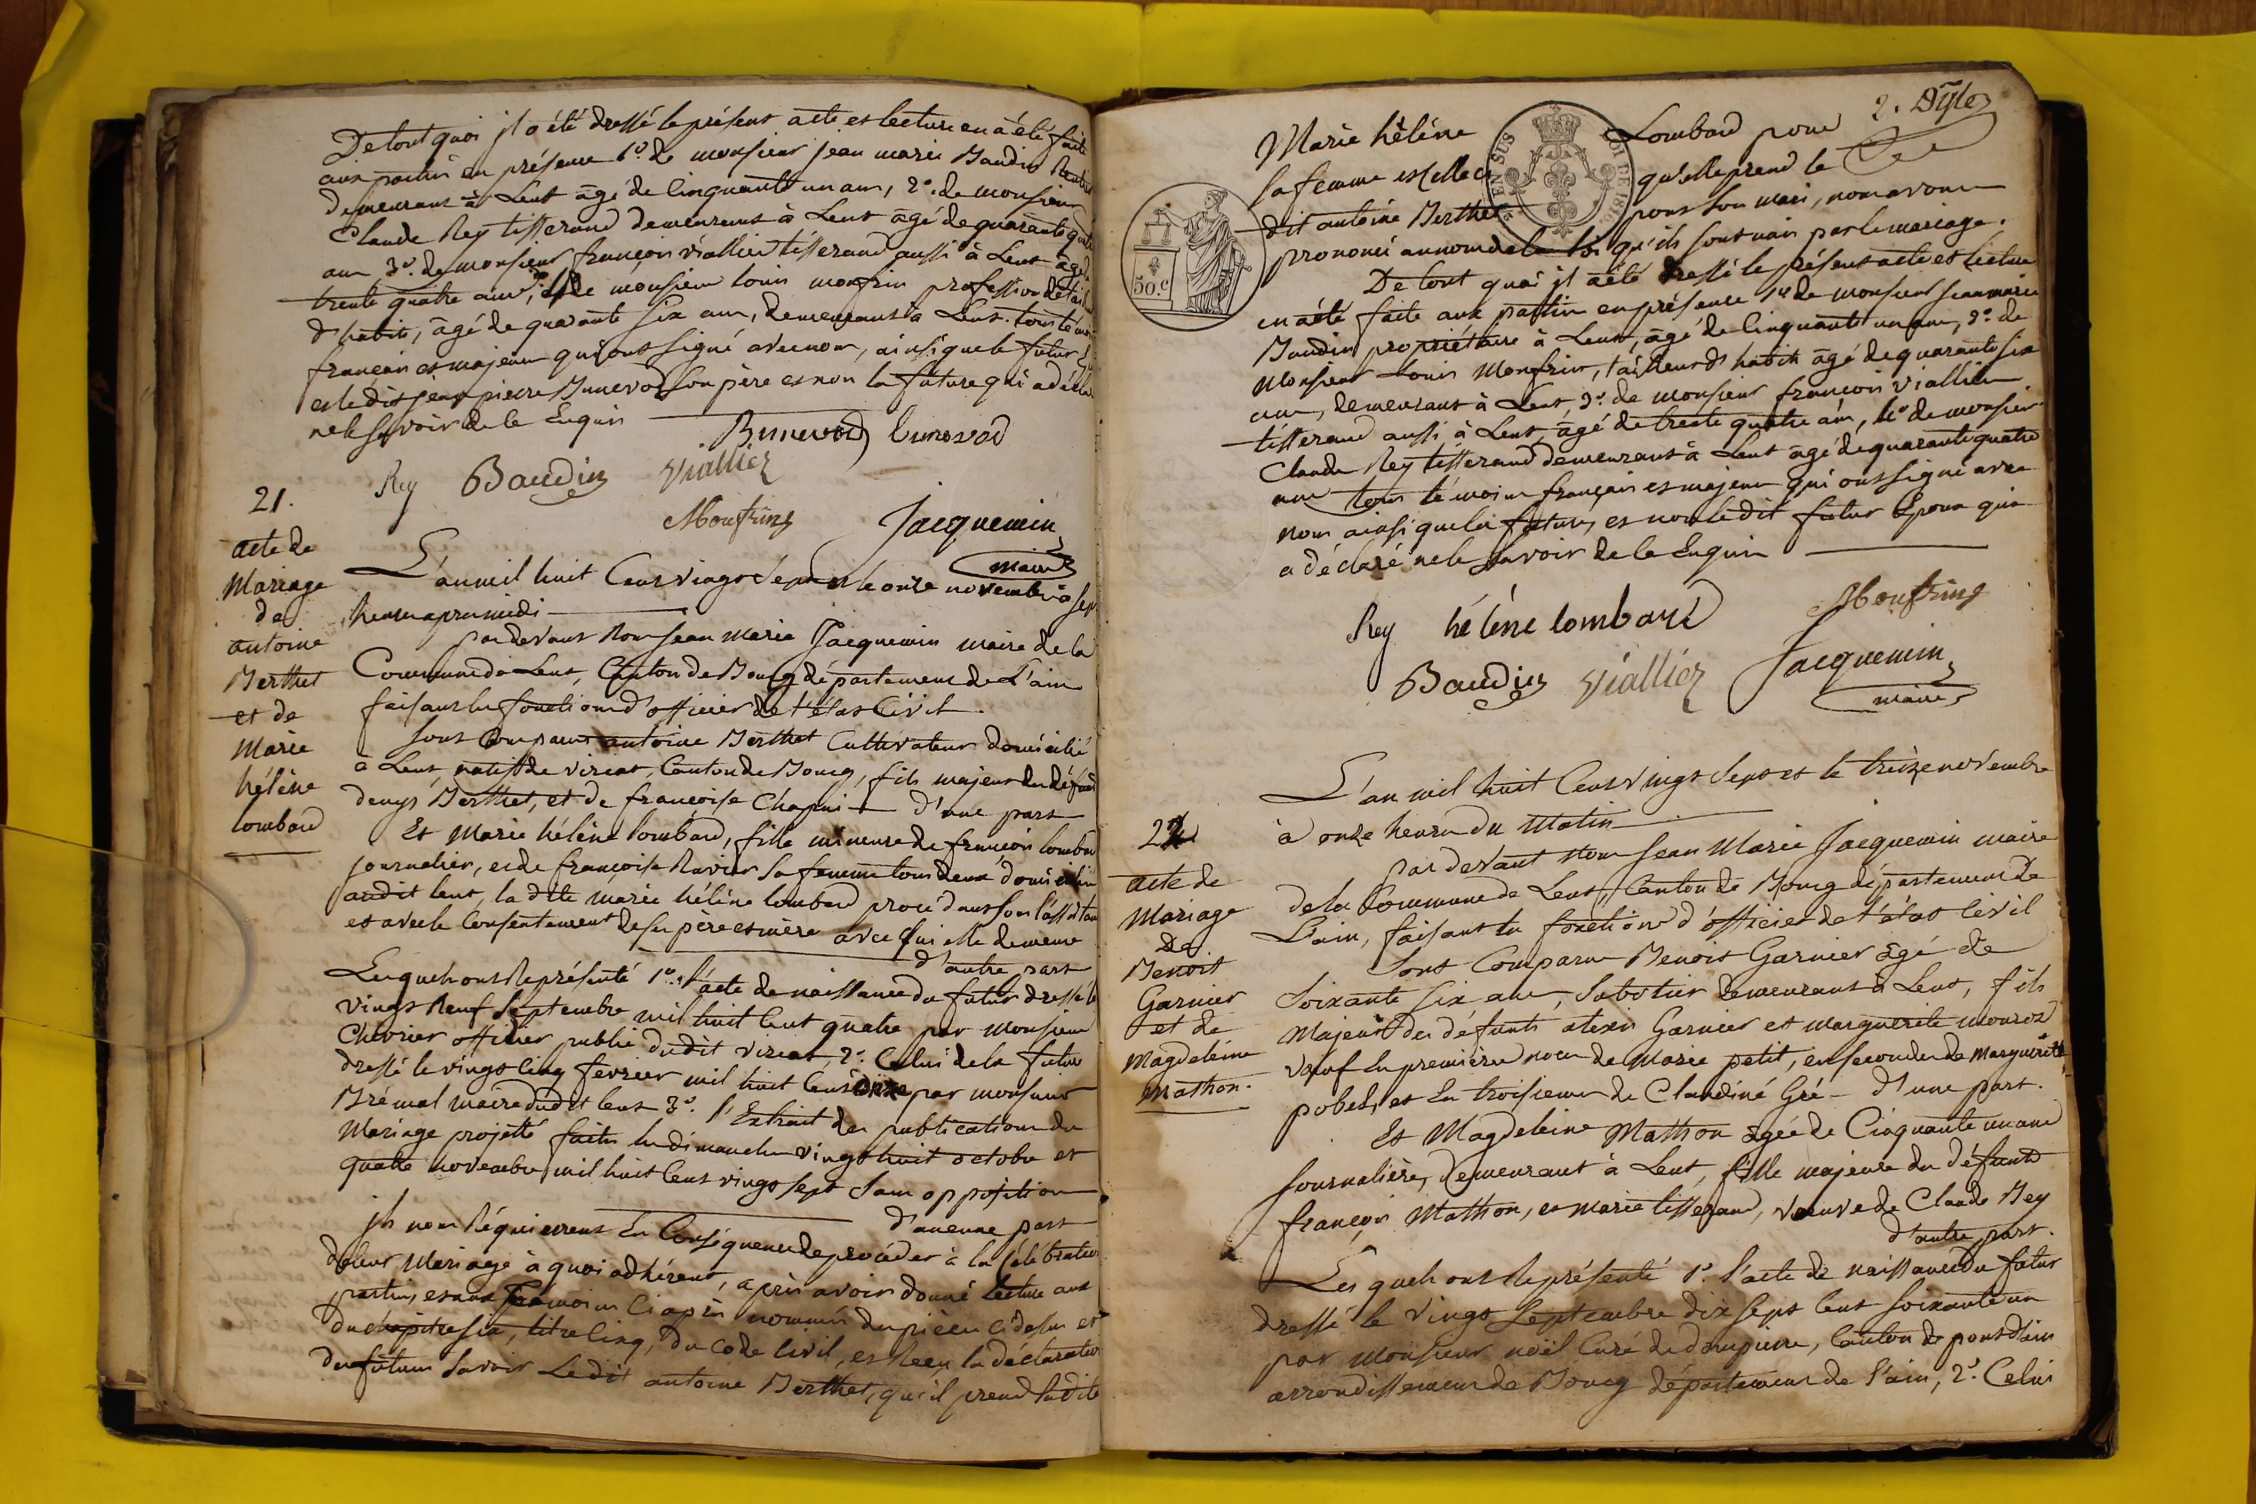 De tout quoi il a été dressé le présent acte et lecture en a été faite
aux parties en présence 1º. de monsieur jean marie Baudin Rentier
demeurant à Lent âgé de Cinquante un ans, 2º. de monsieur
Claude Rey tisserand demeurant à Lent âgé de quarante quatre
ans 3º. de monsieur françois viallier tisserand aussi à Lent âgé de
trente quatre ans, et de monsieur louis monfrin profession de tail
d'habits, âgé de quarante six ans, demeurant à Lent. tous témoins
français et majeurs qui ont signé avec nous, ainsi que le futur
et le dit jean pierre Bunevod son père et non la future qui a déclaré
ne le savoir de le Enquis
Bunevod bunevod
Rey Baudin Viallier
Monfrins Jacquemin
maire
21.
acte de
Mariage
de
antoine
Berthet
et de
Marie
hélène
lombard
L'an mil huit Cent vingt sept et le onze novembre à sept
heures après midi
par devant Nous jean Marie Jacquemin maire de la
Commune de Lent, Canton de Bourg département de L'ain
faisant les fonctions d'officier de l'état Civil.
Sont Comparus antoine Berthet Cultivateur domicilié
à Lent, natif de viriat, Canton de Bourg, fils majeur du défunt
denys Berthet, et de françoise Chapui d'une part
Et Marie hélène lombard, fille mineure de françois lombard
journalier, et de françoise Ravier sa femme tous deux domiciliés
audit lent, la dite marie hélène lombard procédant sous l'assistance
et avec le Consentement de ses père et mère avec qui elle demeure
d'autre part
Lesquels ont Représenté 1º. l'acte de naissance du futur dressé le
vingt Neuf Septembre mil huit Cent quatre par Monsieur
Chevrier officier public dudit viriat, 2º. Celui de la future
dressé le vingt Cinq fevrier mil huit Cent onze par monsieur
Brémal maire dudit lent 3º. l'Extrait des publications du
Mariage projetté faites les dimanches vingt huit octobre et
quatre novembre mil huit Cent vingt sept sans opposition
d'aucune part
jls nous Réquierrent En Conséquence de procéder à la Célébration
de leur Mariage à quoi adhérant, après avoir donné Lecture aux
parties, et aux témoins Ci après nommés des pièces Ci dessus et
du chapitre six, titre Cinq, du Code Civil, et Reçu la déclaration
des futurs Savoir Ledit antoine Berthet, qu'il prend ladite
2. Dyle
Marie hélène Lombard pour
sa femme et Celle ci qu'elle prend le
dit antoine Berthet pour son mari, nous avons
prononcé au nom de la loi qu'ils sont unis par le mariage.
De tout quoi il a été dressé le présent acte et lecture
en a été faite aux parties en présence 1º de monsieur jean marie
Baudin propriétaire à Lent, âgé de Cinquante un ans, 2º. de
Monsieur Louis Monfrin, tailleur d'habits âgé de quarante six
ans, demeurant à Lent, 3º. de monsieur françois viallier
tisserand aussi à Lent, âgé de trente quatre ans, 4º de monsieur
Claude Rey tisserand demeurant à Lent âgé de quarante quatre
ans tous témoins français et majeurs qui ont signé avec
nous ainsi que la future, et non le dit futur Epoux qui
a déclaré ne le savoir de le Enquis
Rey hélène lombard Monfrins
Baudin Viallier Jacquemin
maire
EN SUS
50.c
22
acte de
Mariage
de
Benoit
Garnier
et de
Magdeleine
Mathon.
L'an mil huit Cent vingt Sept et le treize novembre
à onze heures du Matin
par devant Nous jean Marie Jacquemin maire
de la Commune de Lent, Canton de Bourg département de
L'ain, faisant les fonctions d'officier de l'état Civil
Sont Comparus Benoit Garnier âgé de
Soixante six ans, Sabotier demeurant à Lent, fils
Majeur des défunts alexis Garnier et marguerite mouroz
veuf En premières noces de Marie petit, en secondes de Marguerite
pobel, et En troisièmes de Claudine Gré d'une part.
Et Magdeleine Mathon âgée de Cinquante un ans
journalière, demeurant à Lent, fille majeure des défunts
françois Mathon, et marie tisserand, veuve de Claude Rey
d'autre part.
Les quels ont Représenté 1º. l'acte de naissance du futur
dressé le vingt Septembre dix sept Cent soixante un
par monsieur noël Curé de dompierre, Canton de pont d'ain
arrondissement de Bourg département de l'ain, 2º. Celui